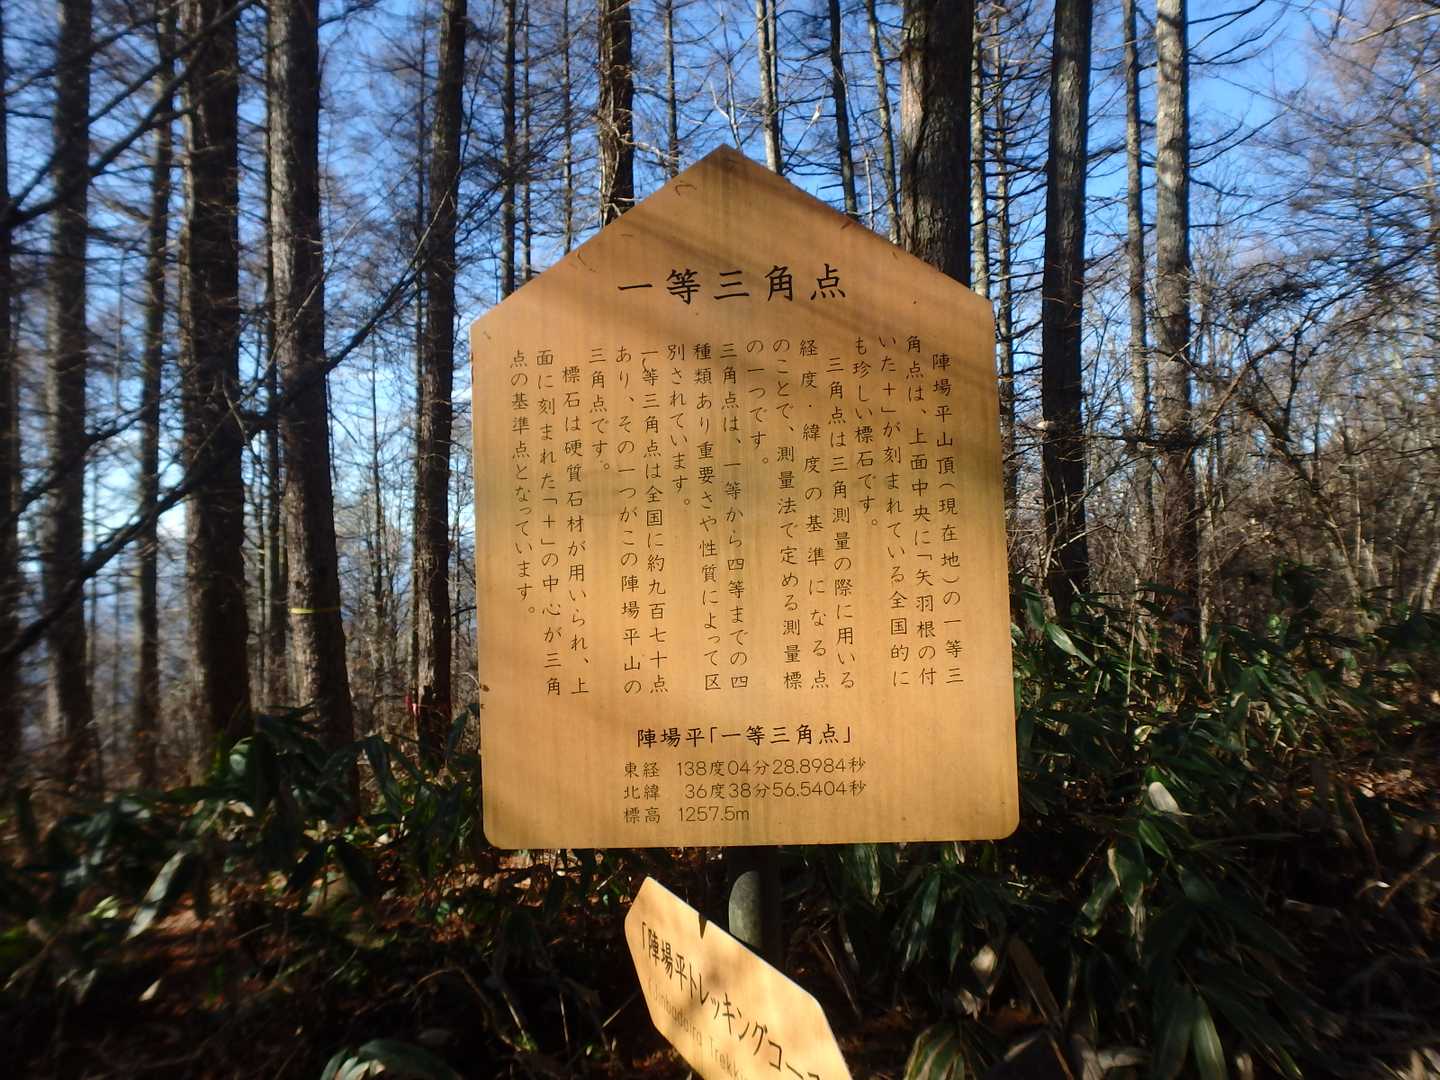 一等三角点
陣場平山頂(現在地)の一等三
角点は、上面中央に「矢羽根の付
いた＋」が刻まれている全国的に
も珍しい標石です。
三角点は三角測量の際に用いる
経度・緯度の基準になる点
のことで、測量法で定める測量標
の一つです。
三角点は、一等から四等までの四
種類あり重要さや性質によって区
別されています。
一等三角点は全国に約九百七十点
あり、その一つがこの陣場平山の
三角点です。
標石は硬質石材が用いられ、上
面に刻まれた「＋」の中心が三角
点の基準点となっています。
陣場平「一等三角点」
東経 138度04分28.8984秒
北緯 36度38分56.5404秒
標高 1257.5m
「陣場平トレッキングコース
Jinbadaira Trekki